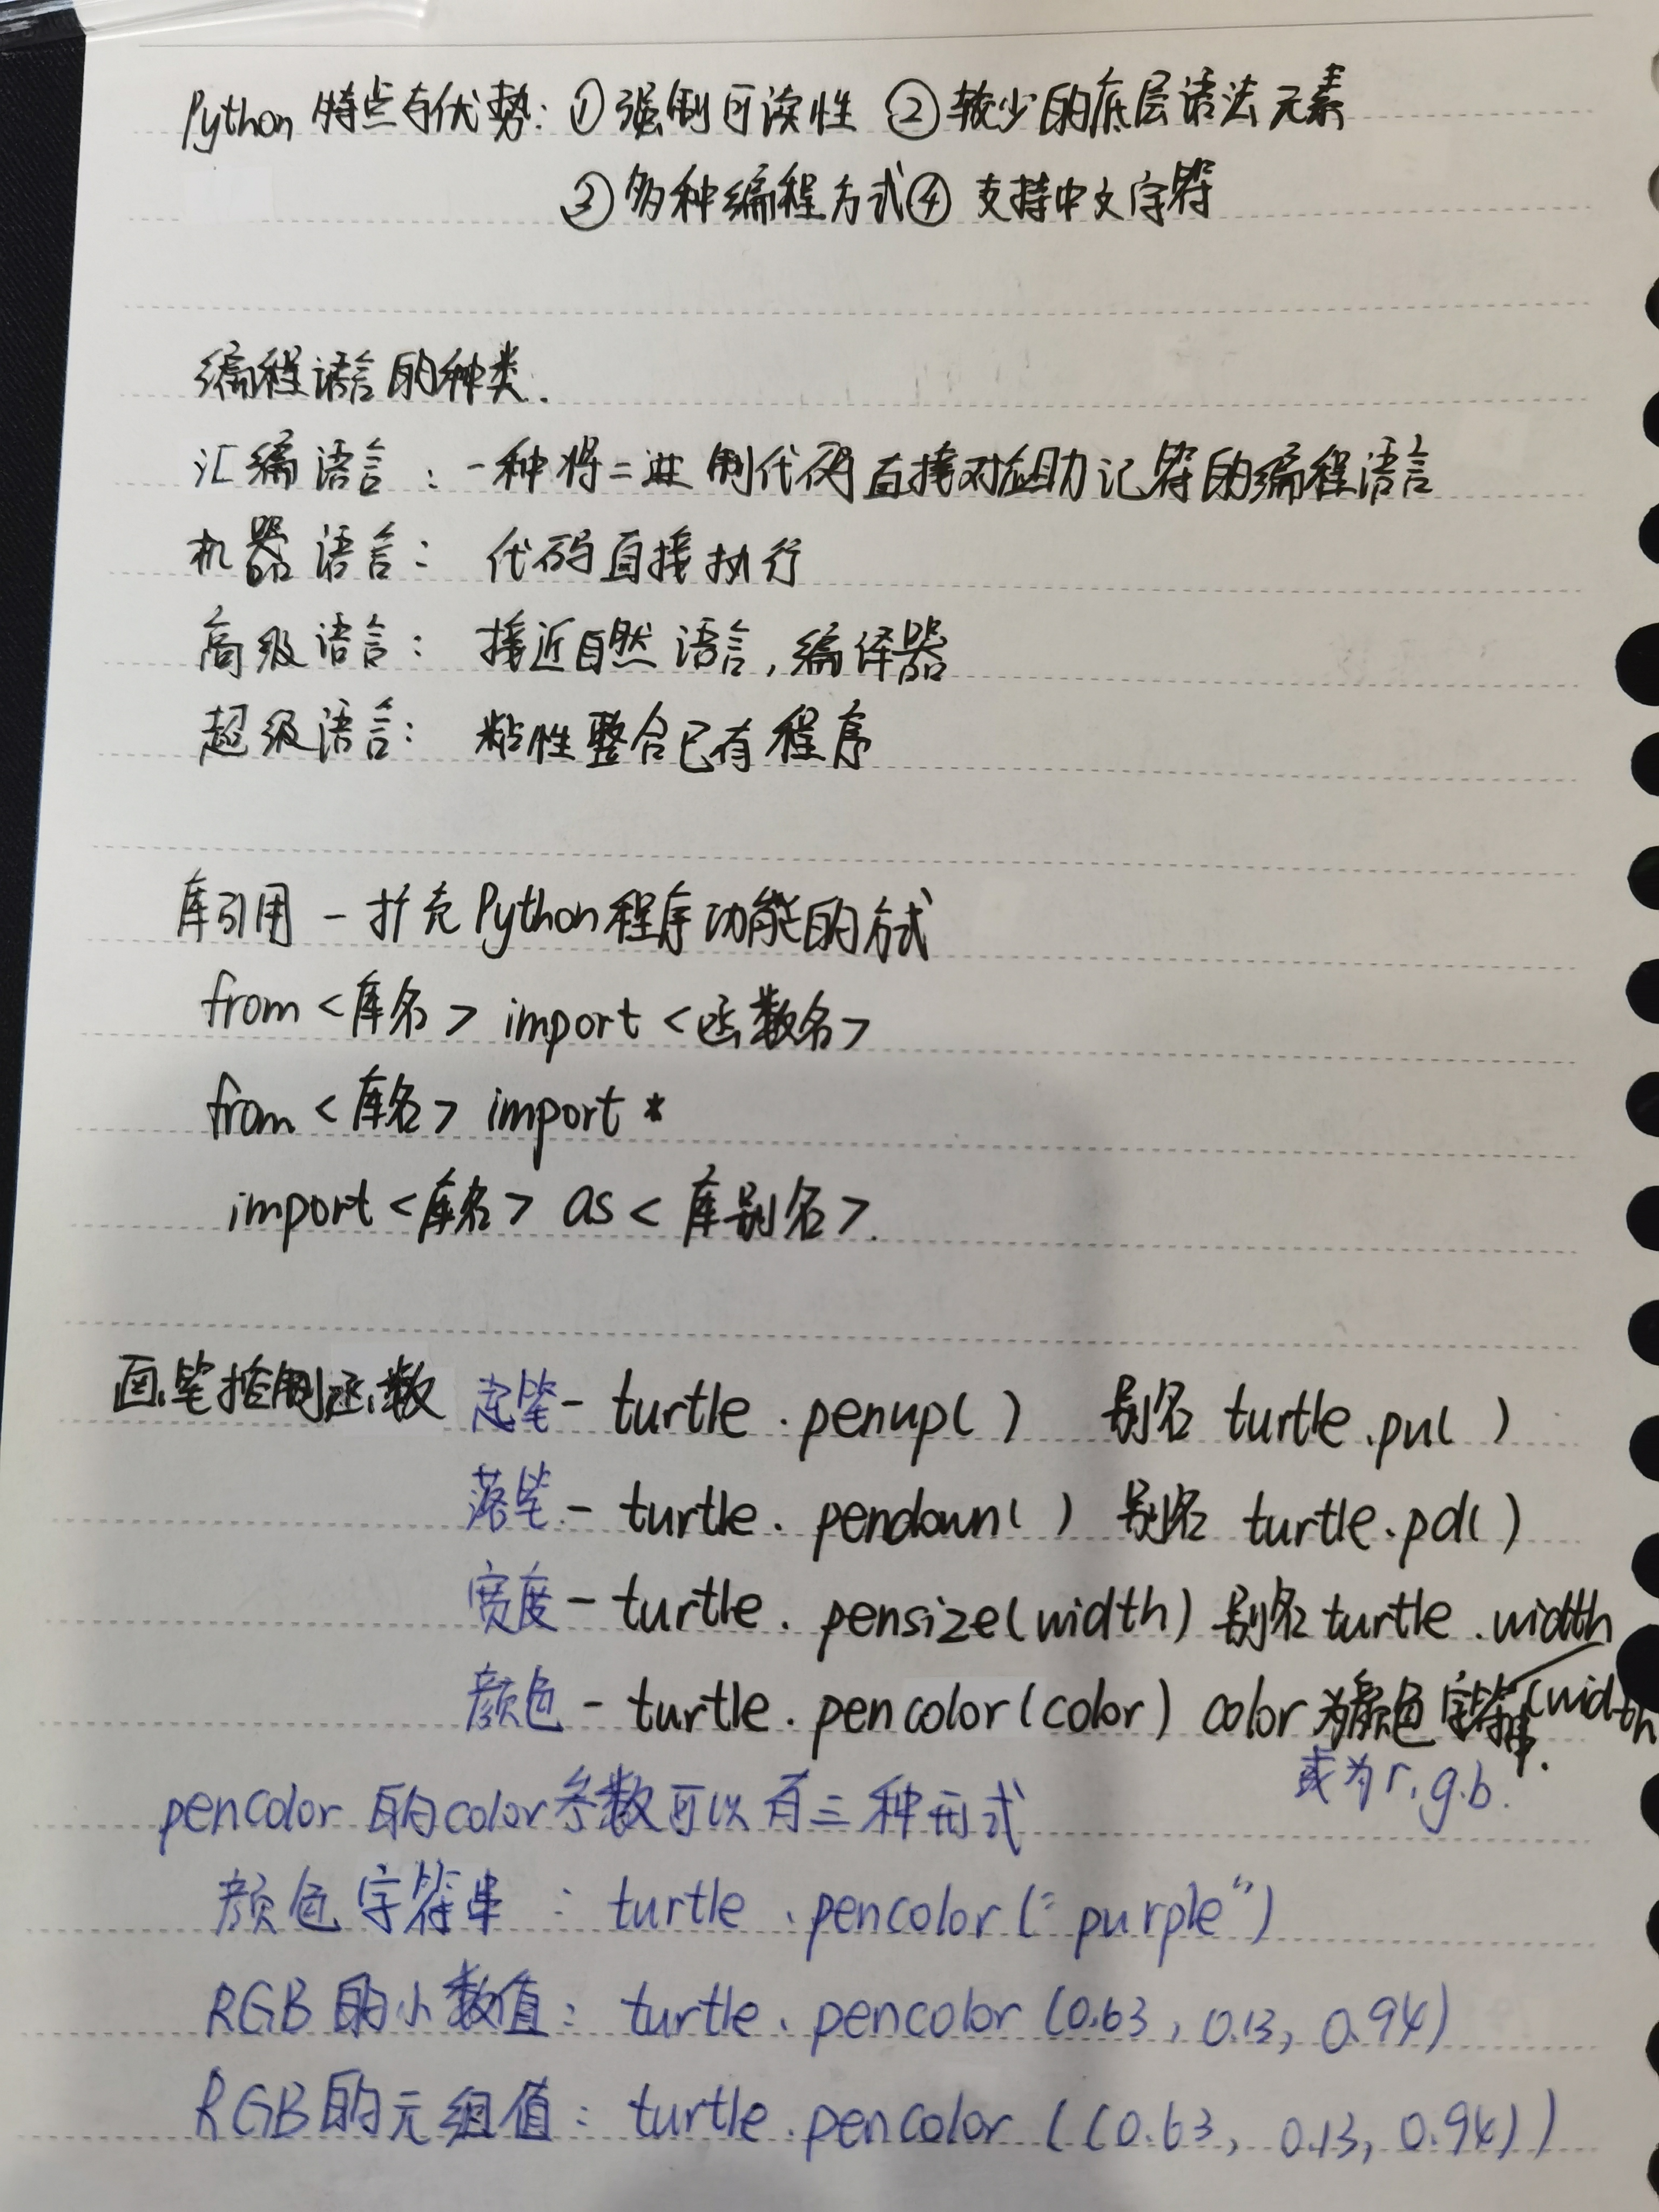 Python 特点与优势: ①强制可读性 ②较少的底层语法元素
③多种编程方式④ 支持中文字符
编程语言的种类.
汇编语言: 一种将二进制代码直接对应助记符的编程语言
机器语言: 代码直接执行
高级语言: 接近自然语言,编译器
超级语言: 粘性整合已有程序
库引用 - 扩充Python程序功能的方式
from <库名> import <函数名>
from <库名> import *
import <库名> as <库别名>.
画笔控制函数 起笔- turtle.penup( ) 别名 turtle.pu( )
落笔- turtle.pendown( ) 别名 turtle.pd( )
宽度- turtle.pensize(width) 别名 turtle.width
(width
颜色- turtle.pencolor(color) color为颜色字符串.
或为r.g.b.
pencolor 的color参数可以有三种形式
颜色字符串: turtle.pencolor("purple")
RGB的小数值: turtle.pencolor (0.63, 0.13, 0.94)
RGB的元组值: turtle.pencolor ((0.63, 0.13, 0.94))